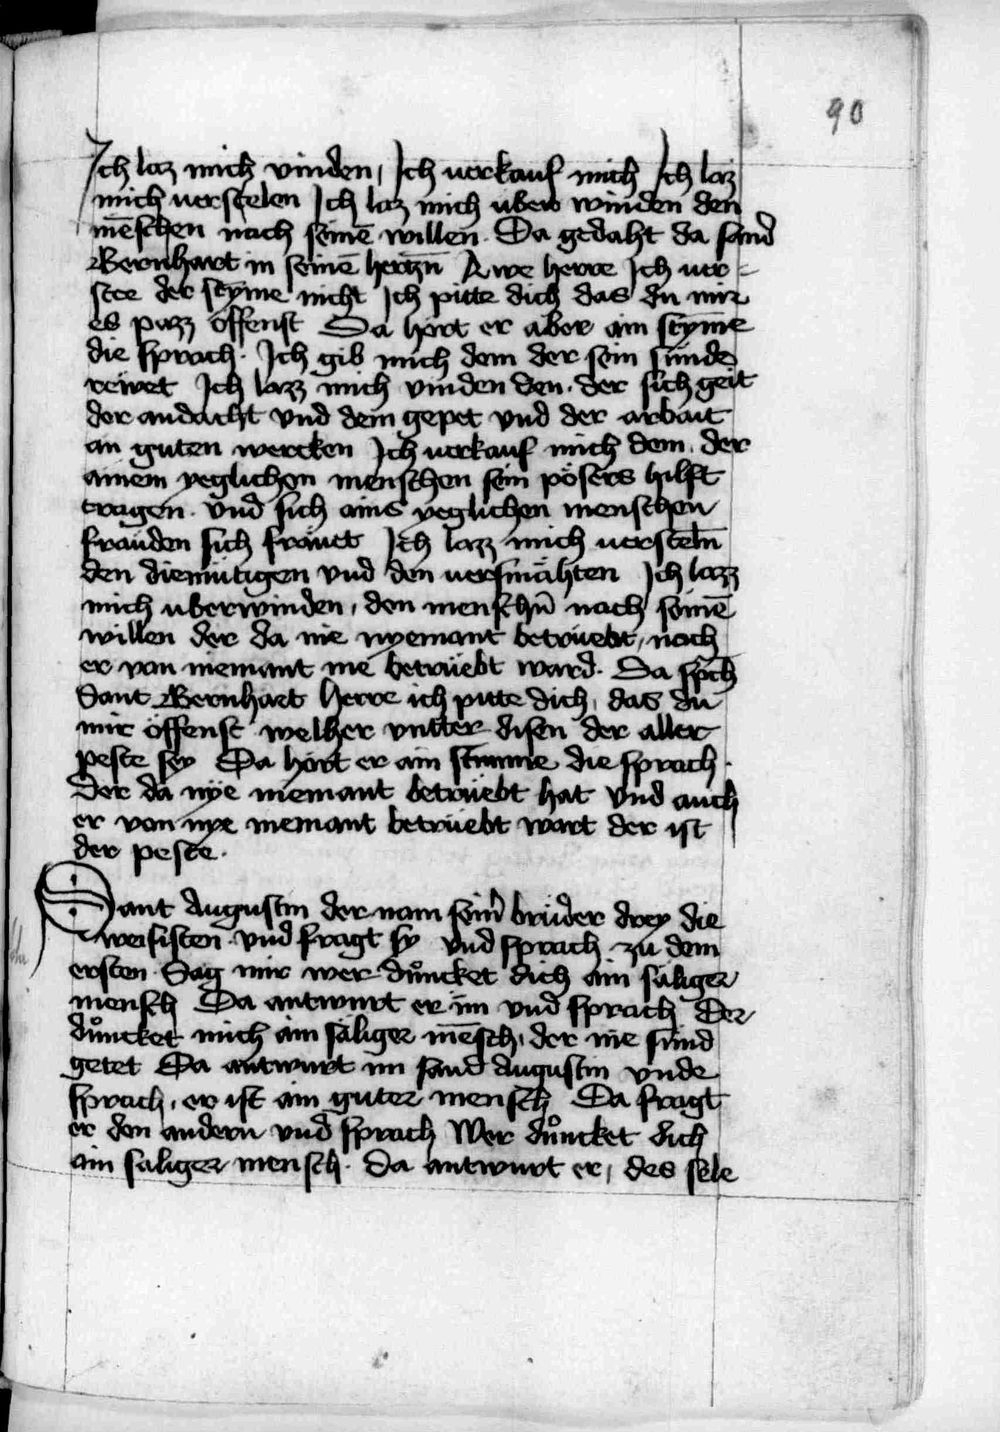 90
Ich laz mich vinden, Ich uerkauf mich Ich laz
mich uerstelen Ich laz mich uber winden den
mēschen nach seinē willen. Da gedaht da sand
Bernhart in seinē hertzn̄ Awe herre Ich uer-
stee der stym̄e nicht Ich pitte dich das du mir
es pazz öffenst Da hort er aber ain stym̄e
die sprach. Ich gib mich dem der sein sünde
rewet Ich lazz mich vinden den. der sich geit
der andacht vnd dem gepet vnd der arbait
an guten wercken Ich uerkauf mich dem. der
ainem yeglichen menschen sein pösers hilft
tragen. vnd sich ains yeglichen menschen
fräuden sich fräuet Ich lazz mich uersteln̄
den diemütigen vnd den uersmähten Ich lazz
mich uberwinden, den menschn̄ nach seinē
willen der da nie nyemant betrüebt, noch
er von niemant nie betrüebt ward. Da sp̄ch
Sant Bernhart herre ich pitte dich, das du
mir öffenst welher vntter disen der aller
peste sey Da hört er ain stimme die sprach.
Der da nÿe niemant betrüebt hat vnd auch
er von nye niemant betrüebt wart der ist
der peste.
Sant Augustin der nam sein̄ brüder drey die
weisisten. vnd fragt sy vnd sprach zu dem
ersten. Sag mir wer důncket dich ain säliger
mensch Da antwurt er im vnd sprach Der
důncket mich ain säliger mēsch, der nie sünd
getet Da antwurt im sand Augustin vnde
sprach, er ist ain guter mensch Da fragt
er den andern vnd sprach Wer důncket dich
ain saliger mensch. Da antwurt er, des sele